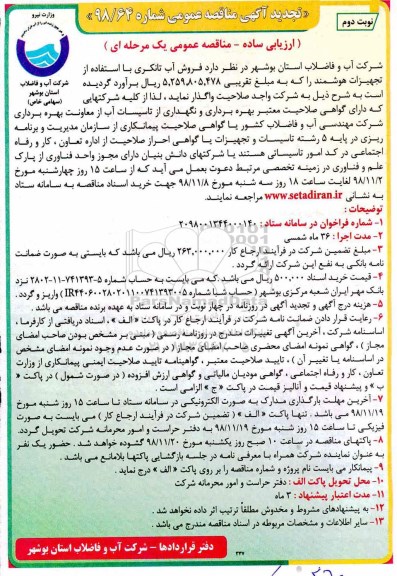 «تجدید آگهی مناقصه عمومی شماره ۹۸/۶۴»
نوبت دوم
وزارت نیرو
شرکت آب و فاضلاب
استان بوشهر
(سهامی خاص)
( ارزیابی ساده - مناقصه عمومی یک مرحله ای )
شرکت آب و فاضلاب استان بوشهر در نظر دارد فروش آب تانکری با استفاده از
تجهیزات هوشمند را که به مبلغ تقریبی ۵,۲۵۹,۸۰۵,۴۷۸ ریال برآورد گردیده
است به شرح ذیل به شرکت واجد صلاحیت واگذار نماید، لذا از کلیه شرکتهایی
که دارای گواهی صلاحیت معتبر بهره برداری و نگهداری از تاسیسات آب از معاونت بهره برداری
شرکت مهندسی آب و فاضلاب کشور یا گواهی صلاحیت پیمانکاری از سازمان مدیریت و برنامه
ریزی در پایه ۵ رشته تاسیسات و تجهیزات یا گواهی احراز صلاحیت از اداره تعاون ، کار و رفاه
اجتماعی در کد امور تاسیساتی هستند یا شرکتهای دانش بنیان دارای مجوز واحد فناوری از پارک
علم و فناوری در زمینه تخصصی مرتبط دعوت بعمل می آید که از ساعت ۱۵ روز چهارشنبه مورخ
۹۸/۱۱/۲ لغایت ساعت ۱۸ روز سه شنبه مورخ ۹۸/۱۱/۸ جهت خرید اسناد مناقصه به سامانه ستاد
به نشانی www.setadiran.ir مراجعه نمایند.
توضیحات :
۱- شماره فراخوان در سامانه ستاد : ۲۰۹۸۰۰۱۳۴۴۰۰۰۱۴۰
۲- مدت اجرا : ۳۶ ماه شمسی
۳- مبلغ تضمین شرکت در فرآیند ارجاع کار ۲۶۳,۰۰۰,۰۰۰ ریال می باشد که بایستی به صورت ضمانت
نامه بانکی به نفع این شرکت ارائه گردد .
۴- قیمت خرید اسناد ۵۰۰,۰۰۰ ریال می باشد که می بایست به حساب شماره ۵-۷۴۱۳۹۳-۱۱-۲۸۰۲ نزد
بانک مهر ایران شعبه مرکزی بوشهر ( حساب شبا شماره ) واریز و گردد .
۵- هزینه درج آگهی و تجدید آگهی در روزنامه در چهار نوبت و در سامانه ستاد به عهده برنده مناقصه می باشد .
۶- رعایت قرار دادن ضمانت نامه شرکت در فرآیند ارجاع کار در پاکت « الف » ، اسناد دریافتی از کارفرما ،
اساسنامه شرکت ، آخرین آگهی تغییرات مندرج در روزنامه رسمی ( مبنی بر مشخص بودن صاحب امضای
مجاز ) ، گواهی نمونه امضای محضری صاحب امضای مجاز ( در صورت عدم وجود نمونه امضای مشخص
در اساسنامه یا تغییر آن ) ، تایید صلاحیت معتبر ، گواهینامه تایید صلاحیت ایمنی پیمانکاری از وزارت
تعاون ، کار و رفاه اجتماعی ، گواهی مودیان مالیاتی و گواهی ارزش افزوده ( در صورت شمول ) در پاکت «
ب » و پیشنهاد قیمت و آنالیز قیمت در پاکت « ج » الزامی است .
۷- آخرین مهلت بارگذاری مدارک به صورت الکترونیکی در سامانه ستاد تا ساعت ۱۵ روز شنبه مورخ
۹۸/۱۱/۱۹ می باشد . تنها پاکت « الف » ( تضمین شرکت در فرآیند ارجاع کار ) می بایست به صورت
فیزیکی تا ساعت ۱۵ روز شنبه مورخ ۹۸/۱۱/۱۹ به دفتر حراست و امور محرمانه شرکت تحویل گردد.
۸- پاکتهای مناقصه در ساعت ۱۰ صبح روز یکشنبه مورخ ۹۸/۱۱/۲۰ گشوده خواهد شد . حضور یک نفر
به عنوان نماینده شرکت همراه با معرفی نامه در جلسه بازگشایی پاکتها بلامانع می باشد .
۹- پیمانکار می بایست نام پروژه و شماره مناقصه را بر روی پاکت « الف » درج نماید .
۱۰- محل تحویل پاکت الف : دفتر حراست و امور محرمانه شرکت
۱۱- مدت اعتبار پیشنهاد : ۳ ماه
۱۲- به پیشنهادهای مشروط و مخدوش مطلقاً ترتیب اثر داده نخواهد شد .
۱۳- سایر اطلاعات و مشخصات مربوطه در اسناد مناقصه مندرج می باشد .
دفتر قراردادها - شرکت آب و فاضلاب استان بوشهر